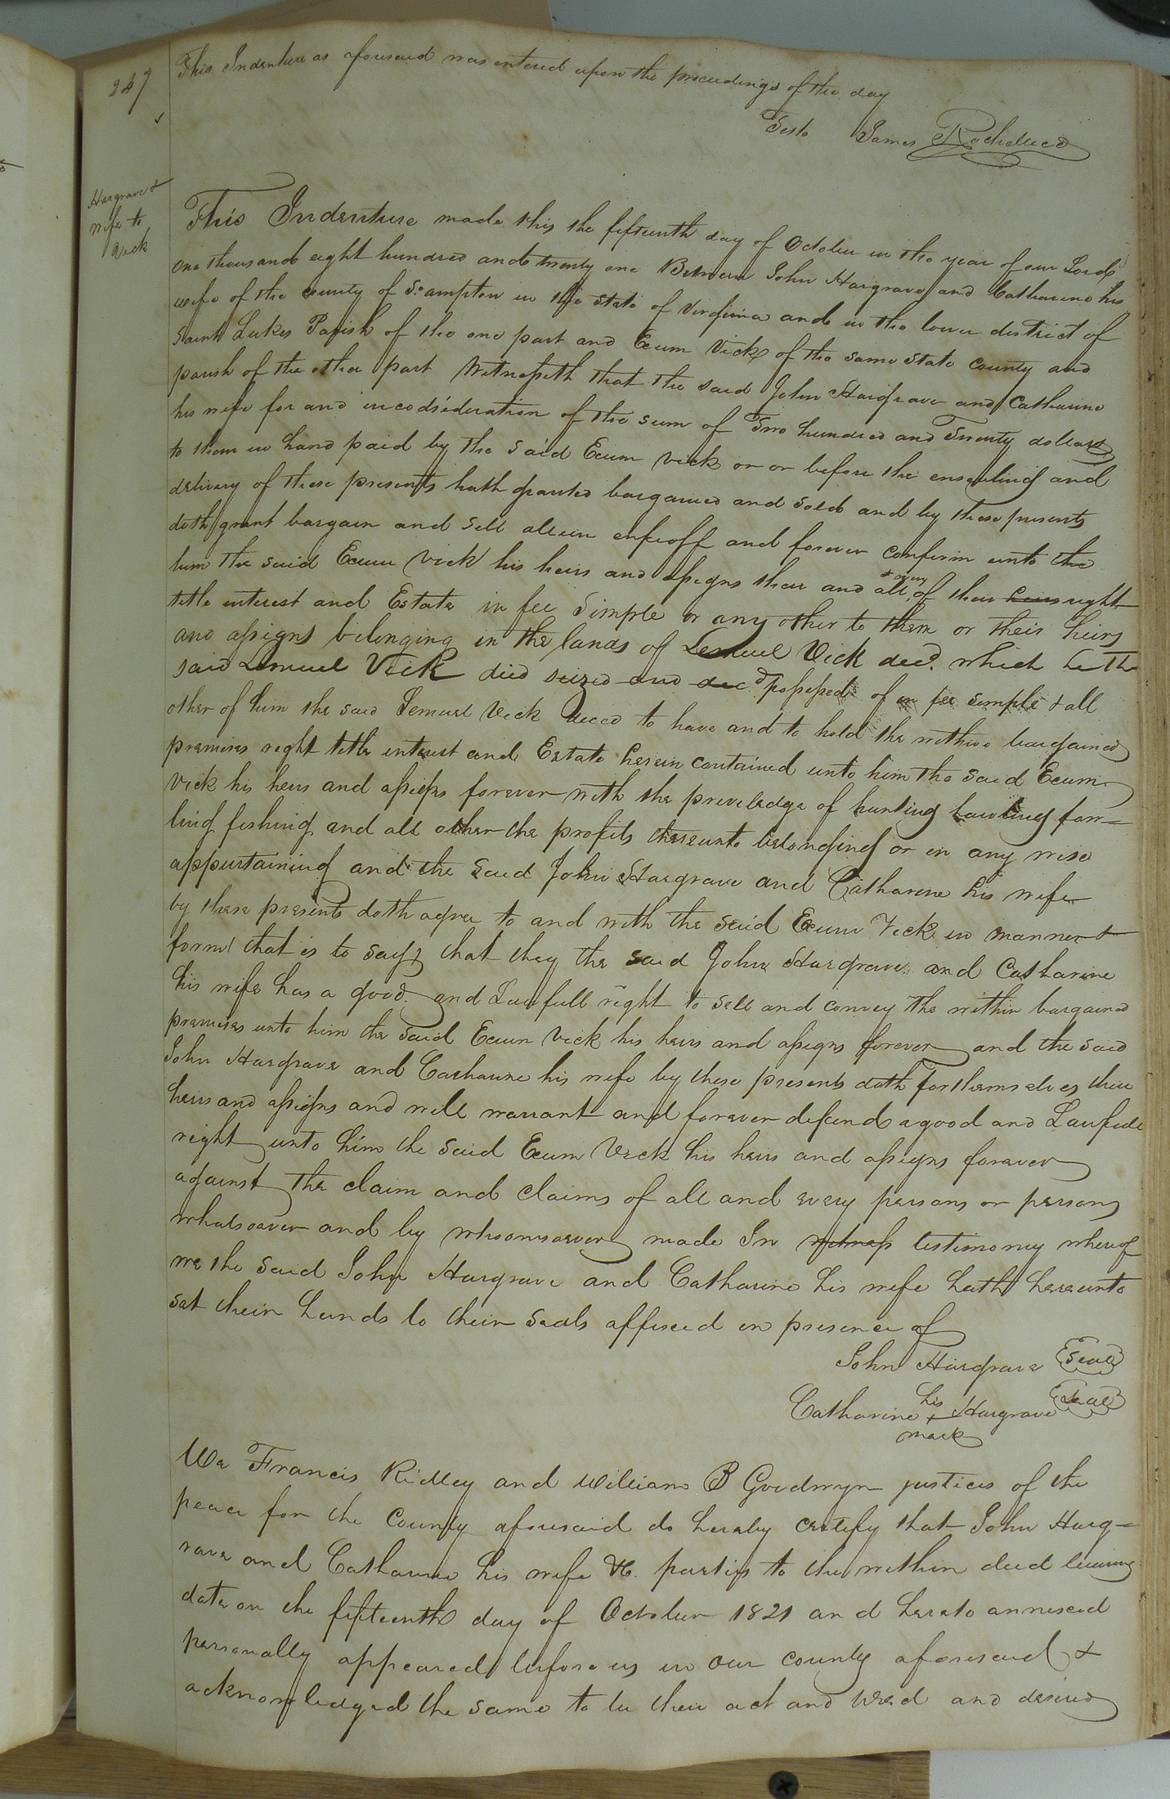 247
This Indenture as aforesaid was entered upon the proceedings of the day
Teste James Rochelle CC
Hargrave &
wife to
Vick
This Indenture made this the fifteenth day of October in the year of our Lord
one thousand eight hundred and twenty one Between John Hargrave and Catharine his
wife of the county of So.ampton in the State of Virginia and in the lower district of
Saint Lukes Parish of the one part and Exum Vick of the same State County and
parish of the other part Witnesseth that the said John Hargrave and Catharine
his wife for and in consideration of the sum of Two hundred and Twenty dollars
to them in hand paid by the said Exum Vick on or before the ensealing and
delivery of these presents hath granted bargained and sold and by these presents
doth grant bargain and sell alien enfeoff and forever confirm unto the
him the said Exum Vick his heirs and assigns their and all & every of their heirs right
title interest and Estate in fee Simple or any other to them or their heirs
and assigns belonging in the lands of Lemuel Vick decd. which he the
said Lemuel Vick died seized and decd possessed of in fee simple & all
other of him the said Lemuel Vick decd to have and to hold the within bargained
premises right title interest and Estate herein contained unto him the said Exum
Vick his heirs and assigns forever with the priveledge of hunting hawking fow-
ling fishing and all other the profits thereunto belonging or in any wise
appurtaining and the said John Hargrave and Catharine his wife
by these presents doth agree to and with the said Exum Vick in manner &
form that is to say, that they the said John Hargrave and Catharine
his wife has a good and Lawfull right to sell and convey the within bargained
premises unto him the said Exum Vick his heirs and assigns forever and the said
John Hargrave and Catharine his wife by these presents doth for themselves their
heirs and assigns and will warrant and forever defend a good and Lawfull
right unto him the said Exum Vick his heirs and assigns forever
against the claim and claims of all and every persons or persons
whatsoever and by whomsoever made In witness testimony whereof
we the said John Hargrave and Catharine his wife hath hereunto
set their hands to their seals affixed in presence of
John Hargrave Seal
Catharine his + mark Hargrave Seal
We Francis Ridley and William B Goodwyn justices of the
peace for the County aforesaid do hereby certify that John Harg-
rave and Catharine his wife &c. parties to the within deed bearing
date on the fifteenth day of October 1821 and hereto annexed
personally appeared before us in our county aforesaid &
acknowledged the same to be their act and deed and desired